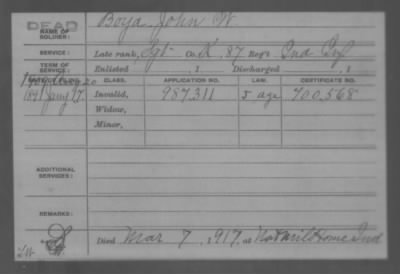 DEAD
NAME OF SOLDIER: Boya John W
SERVICE: Late rank, Sgt Co. K, 87 Reg't Ind Inf
TERM OF SERVICE: Enlisted , 1 Discharged , 1
CLASS. APPLICATION NO. LAW. CERTIFICATE NO.
1891 Jany 17 Invalid, 987.311 5 age 700.568
Widow,
Minor,
ADDITIONAL SERVICES:
REMARKS:
Died Mar 7, 1917, at Nat Mil Home Ind